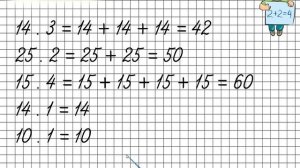 2+2=4
14 . 3 = 14 + 14 + 14 = 42
25 . 2 = 25 + 25 = 50
15 . 4 = 15 + 15 + 15 + 15 = 60
14 . 1 = 14
10 . 1 = 10